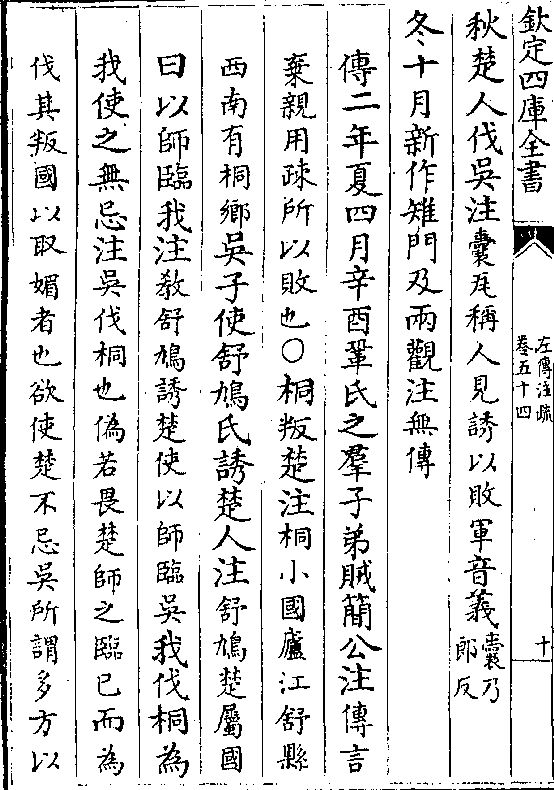 欽定四庫全書
左傳注疏
卷五十四
十
秋楚人伐吳注囊瓦稱人見誘以敗軍音義囊乃
郎反
冬十月新作雉門及兩觀注無傳
傳二年夏四月辛酉鞏氏之羣子弟賊簡公注傳言
棄親用疎所以敗也○桐叛楚注桐小國廬江舒縣
西南有桐鄉吳子使舒鳩氏誘楚人注舒鳩楚屬國
曰以師臨我注教舒鳩誘楚使以師臨吳我伐桐為
我使之無忌注吳伐桐也偽若畏楚師之臨已而為
伐其叛國以取媚者也欲使楚不忌吳所謂多方以